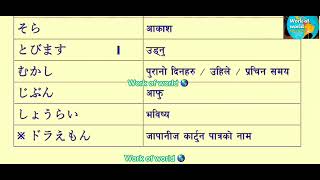 Work of world
そら आकाश
とびます I उड्नु
むかし पुरानो दिनहरु / उहिले / प्रचिन समय
Work of world
じぶん आफु
しょうらい भविष्य
※ ドラえもん जापानीज कार्टुन पात्रको नाम
Work of world